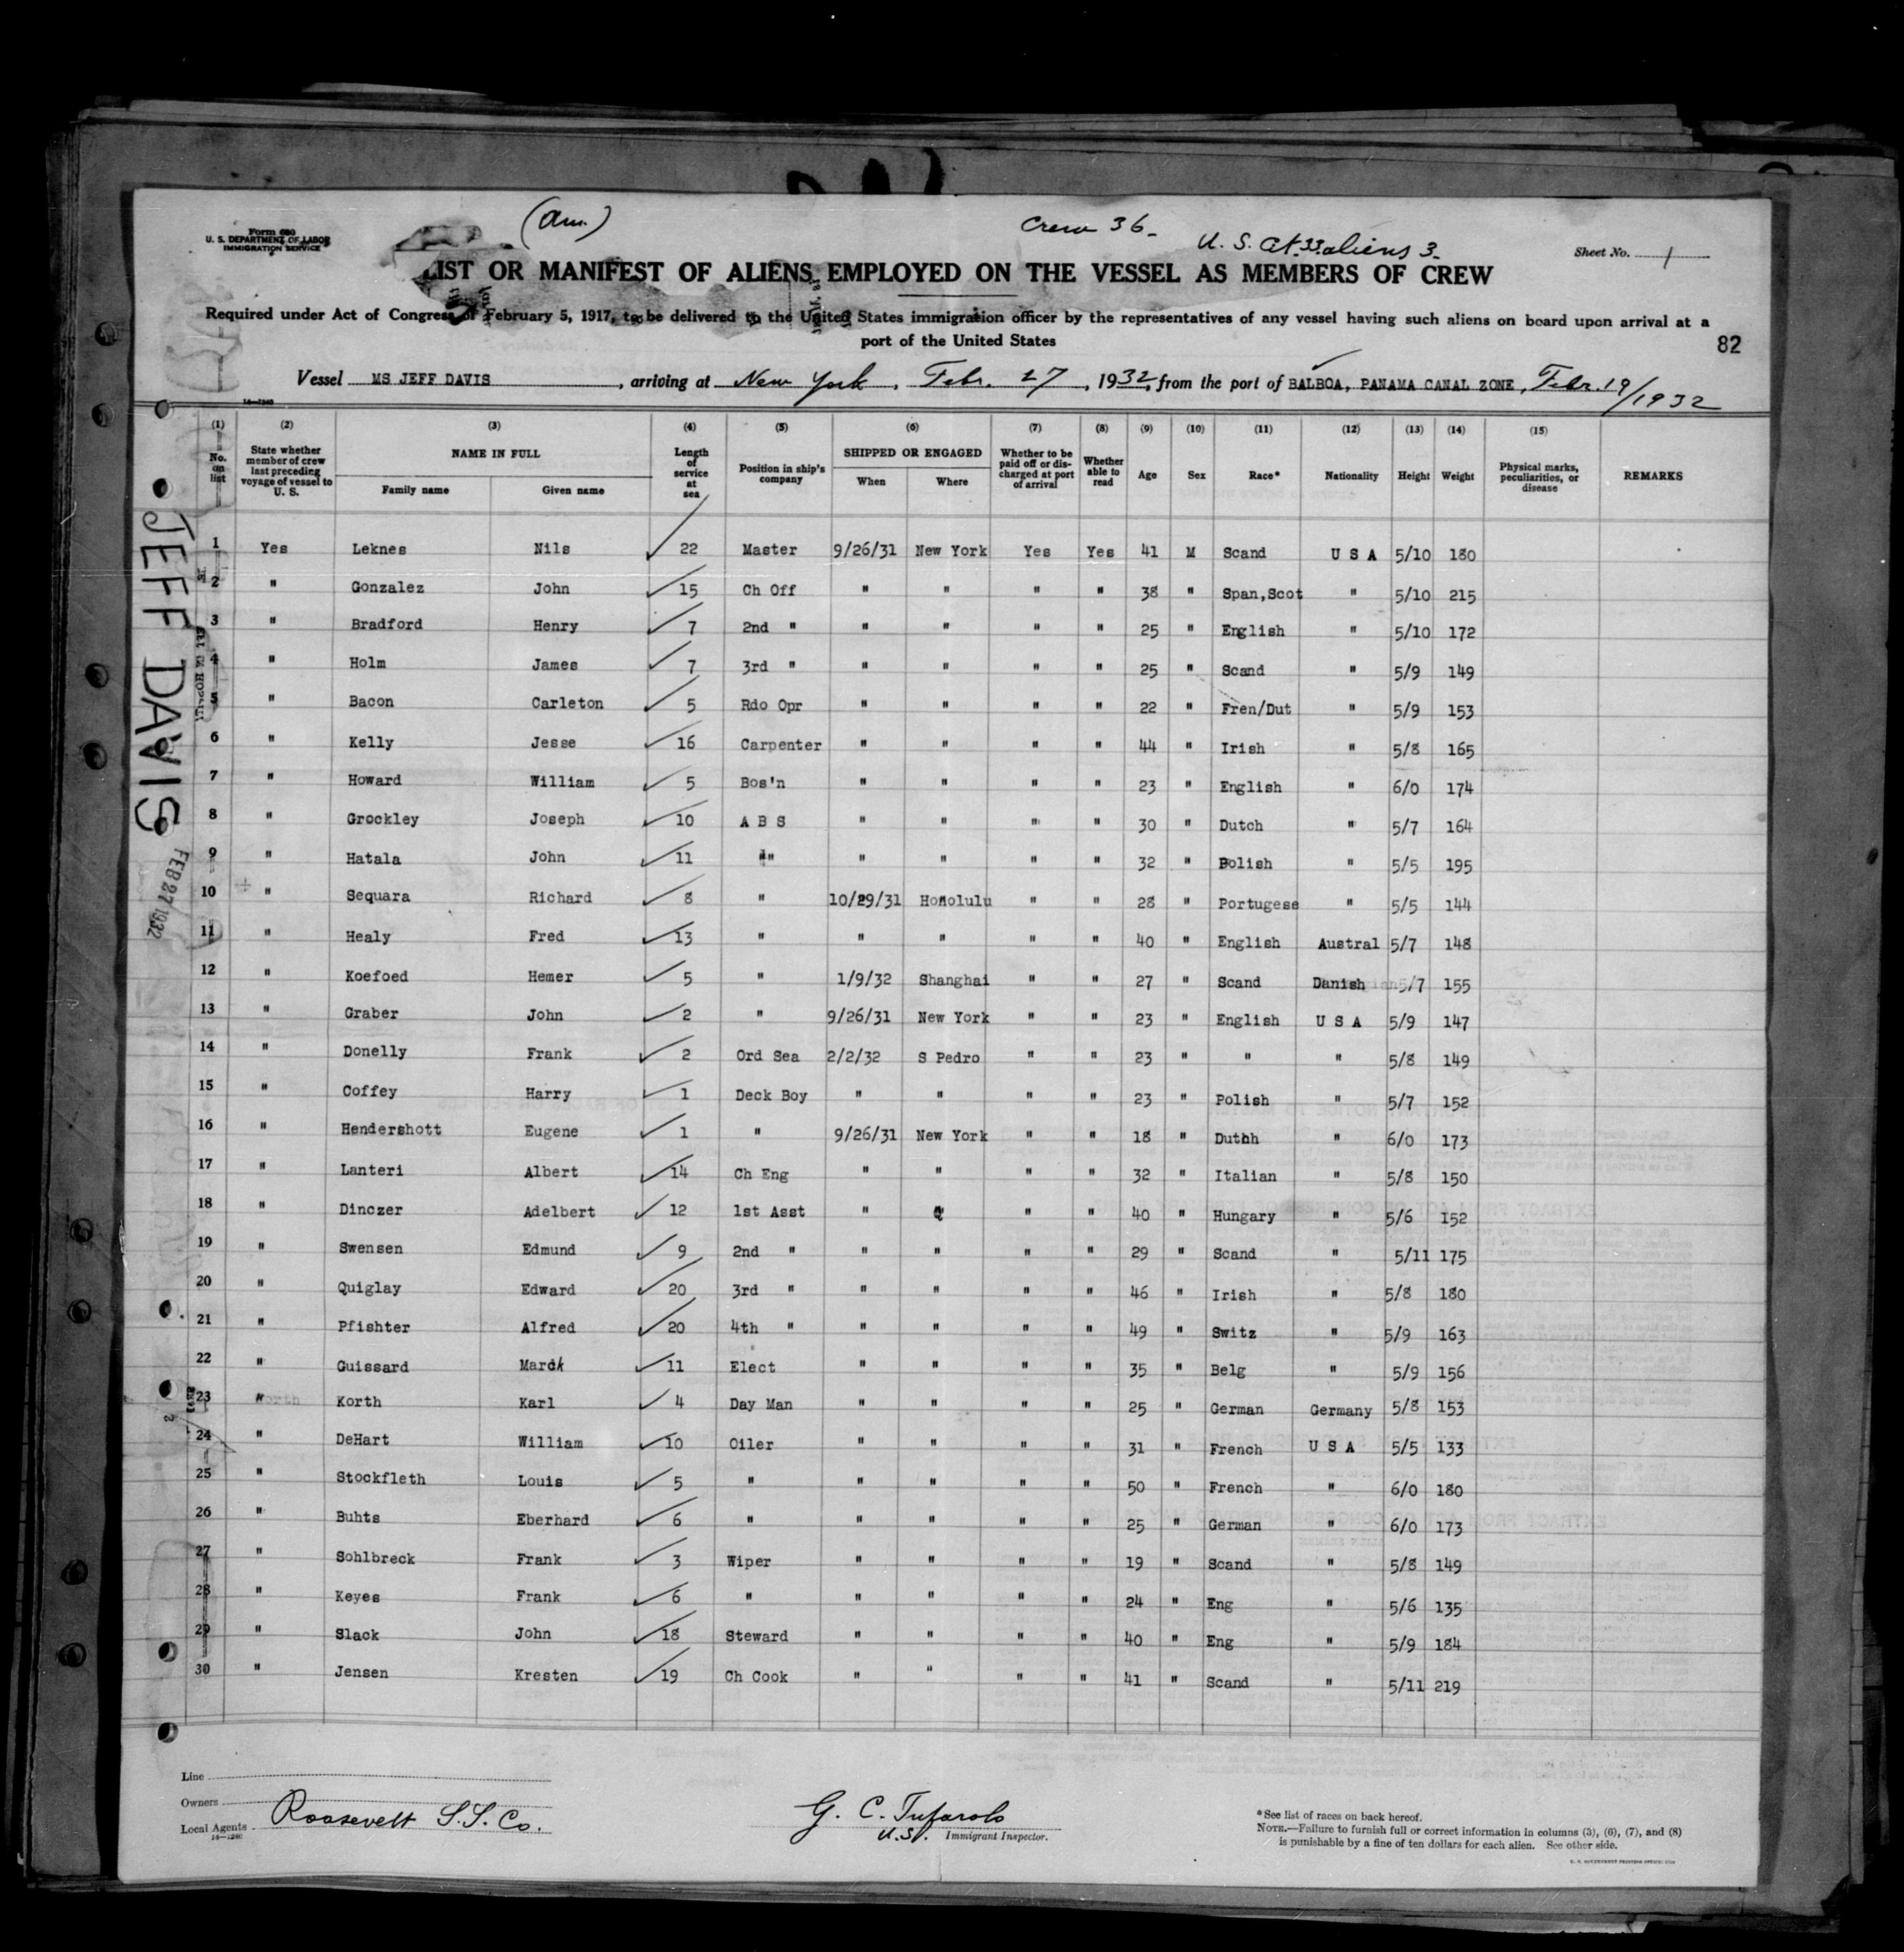 (Am.)
Crew 36-
U. S. Cit. 33 aliens 3-
Form 680
U. S. DEPARTMENT OF LABOR
IMMIGRATION SERVICE
Sheet No. 1
LIST OR MANIFEST OF ALIENS EMPLOYED ON THE VESSEL AS MEMBERS OF CREW
Required under Act of Congress of February 5, 1917, to be delivered to the United States immigration officer by the representatives of any vessel having such aliens on board upon arrival at a
port of the United States
82
Vessel MS JEFF DAVIS, arriving at New York, Febr. 27, 1932, from the port of BALBOA, PANAMA CANAL ZONE, Febr. 19/1932
(1) (2) (3) (4) (5) (6) (7) (8) (9) (10) (11) (12) (13) (14) (15)
No. on list | State whether member of crew last preceding voyage of vessel to U. S. | NAME IN FULL Family name Given name | Length of service at sea | Position in ship's company | SHIPPED OR ENGAGED When Where | Whether to be paid off or discharged at port of arrival | Whether able to read | Age | Sex | Race* | Nationality | Height | Weight | Physical marks, peculiarities, or disease | REMARKS
1 Yes Leknes Nils 22 Master 9/26/31 New York Yes Yes 41 M Scand U S A 5/10 180
2 " Gonzalez John 15 Ch Off " " " " 38 " Span,Scot " 5/10 215
3 " Bradford Henry 7 2nd " " " " " 25 " English " 5/10 172
4 " Holm James 7 3rd " " " " " 25 " Scand " 5/9 149
5 " Bacon Carleton 5 Rdo Opr " " " " 22 " Fren/Dut " 5/9 153
6 " Kelly Jesse 16 Carpenter " " " " 44 " Irish " 5/8 165
7 " Howard William 5 Bos'n " " " " 23 " English " 6/0 174
8 " Grockley Joseph 10 A B S " " " " 30 " Dutch " 5/7 164
9 " Hatala John 11 " " " " " 32 " Polish " 5/5 195
10 " Sequara Richard 8 " 10/29/31 Honolulu " " 28 " Portugese " 5/5 144
11 " Healy Fred 13 " " " " " 40 " English Austral 5/7 148
12 " Koefoed Hemer 5 " 1/9/32 Shanghai " " 27 " Scand Danish 5/7 155
13 " Graber John 2 " 9/26/31 New York " " 23 " English U S A 5/9 147
14 " Donelly Frank 2 Ord Sea 2/2/32 S Pedro " " 23 " " " 5/8 149
15 " Coffey Harry 1 Deck Boy " " " " 23 " Polish " 5/7 152
16 " Hendershott Eugene 1 " 9/26/31 New York " " 18 " Dutch " 6/0 173
17 " Lanteri Albert 14 Ch Eng " " " " 32 " Italian " 5/8 150
18 " Dinczer Adelbert 12 1st Asst " " " " 40 " Hungary " 5/6 152
19 " Swensen Edmund 9 2nd " " " " " 29 " Scand " 5/11 175
20 " Quiglay Edward 20 3rd " " " " " 46 " Irish " 5/8 180
21 " Pfishter Alfred 20 4th " " " " " 49 " Switz " 5/9 163
22 " Guissard Marck 11 Elect " " " " 35 " Belg " 5/9 156
23 " Korth Karl 4 Day Man " " " " 25 " German Germany 5/8 153
24 " DeHart William 10 Oiler " " " " 31 " French U S A 5/5 133
25 " Stockfleth Louis 5 " " " " " 50 " French " 6/0 180
26 " Buhts Eberhard 6 " " " " " 25 " German " 6/0 173
27 " Sohlbreck Frank 3 Wiper " " " " 19 " Scand " 5/8 149
28 " Keyes Frank 6 " " " " " 24 " Eng " 5/6 135
29 " Slack John 18 Steward " " " " 40 " Eng " 5/9 184
30 " Jensen Kresten 19 Ch Cook " " " " 41 " Scand " 5/11 219
JEFF DAVIS
FEB 27 1932
Line
Owners
Local Agents Roosevelt S.S. Co.
14—1240
G. C. Tufarolo
U.S. Immigrant Inspector.
*See list of races on back hereof.
NOTE.—Failure to furnish full or correct information in columns (3), (6), (7), and (8)
is punishable by a fine of ten dollars for each alien. See other side.